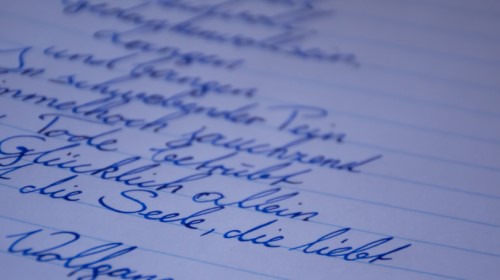 gedankenvoll sein,
Langen
und bangen
In schwebender Pein
immelhoch jauchzend
Tode betrübt
Glücklich allein
die Seele, die liebt
Wolfgang